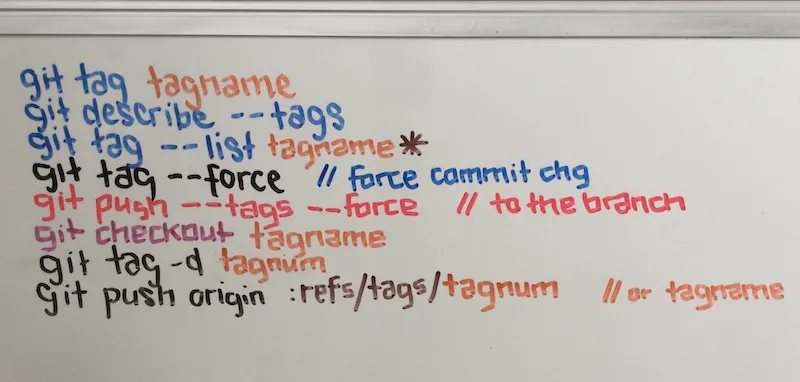 git tag tagname
git describe --tags
git tag --list tagname*
git tag --force // force commit chg
git push --tags --force // to the branch
git checkout tagname
git tag -d tagnum
git push origin :refs/tags/tagnum // or tagname